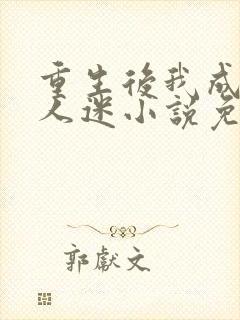 重生後我成
人迷小說免
郭獻文